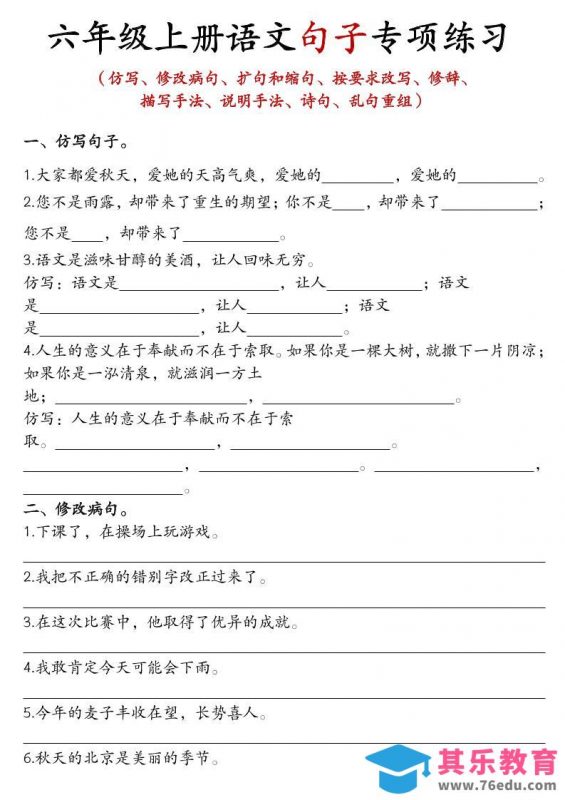 六年级上册语文句子专项练习
（仿写、修改病句、扩句和缩句、按要求改写、修辞、
描写手法、说明手法、诗句、乱句重组）
一、仿写句子。
1.大家都爱秋天，爱她的天高气爽，爱她的_________，爱她的__________。
2.您不是雨露，却带来了重生的期望；你不是____，却带来了____________；
您不是____，却带来了____________。
3.语文是滋味甘醇的美酒，让人回味无穷。
仿写：语文是____________________，让人____________；语文
是____________________，让人____________；语文
是____________________，让人____________。
4.人生的意义在于奉献而不在于索取。如果你是一棵大树，就撒下一片阴凉；
如果你是一泓清泉，就滋润一方土
地；________________________，________________________。
仿写：人生的意义在于奉献而不在于索
取。____________________，____________________。
____________________，____________________。____________________，
____________________。
二、修改病句。
1.下课了，在操场上玩游戏。
2.我把不正确的错别字改正过来了。
3.在这次比赛中，他取得了优异的成就。
4.我敢肯定今天可能会下雨。
5.今年的麦子丰收在望，长势喜人。
6.秋天的北京是美丽的季节。
其乐教育
www.76edu.com